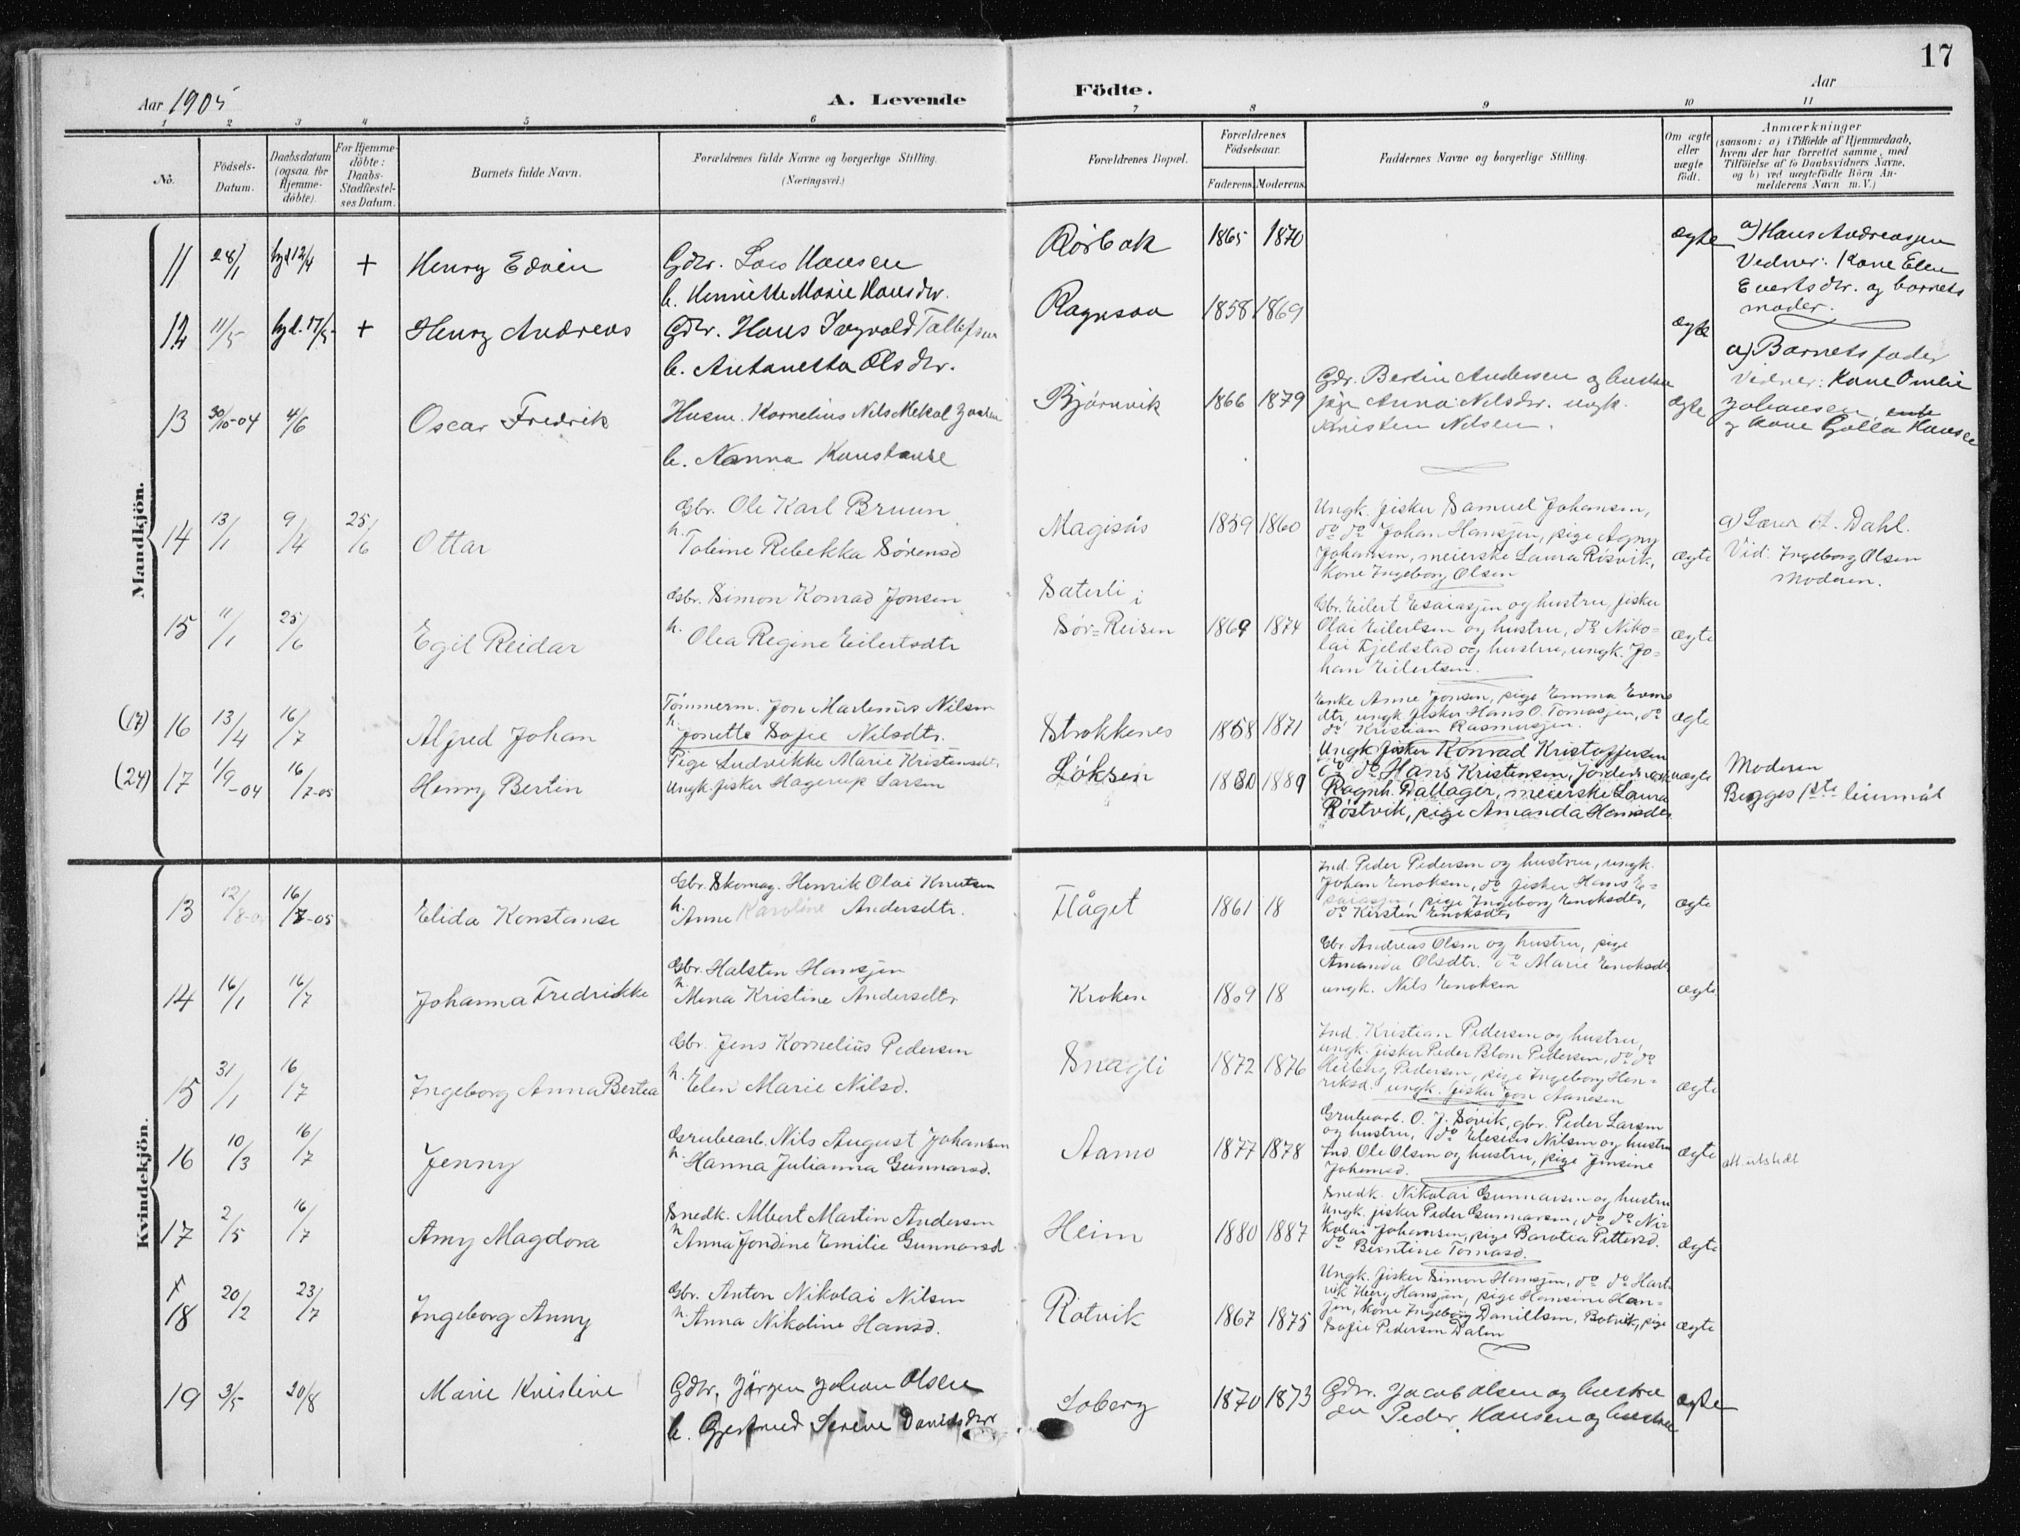 17
Aar 1905
A. Levende
Födte.
Aar
1 2 3 4 5 6 7 8 9 10 11
No.
Födsels-Datum.
Daabsdatum (ogsaa for Hjemmedöbte).
For Hjemmedöbte: Daabs-Stadfæstelses Datum.
Barnets fulde Navn.
Forældrenes fulde Navne og borgerlige Stilling.
(Næringsvei.)
Forældrenes Bopæl.
Forældrenes Födselsaar.
Faderens. Moderens.
Faddernes Navne og borgerlige Stilling.
Om ægte eller uægte födt.
Anmærkninger
(saasom: a) i Tilfælde af Hjemmedaab, hvem der har forrettet samme, med Tilföielse af to Daabsvidners Navne, og b) ved uægtefödte Börn Anmelderens Navn m. V.)
Mandkjön.
11 28/1 hjd 12/4 + Henry Edvin
Gdbr. Hansen
h. Henriette Marie Hansdtr.
Rørbak 1865 1870 ægte
a) Hans Andreassen
Vidner: Kone Elen
Evertsdtr. og barnets
moder.
12 11/5 hjd. 17/5 + Henry Andreas
Gdbr. Hans Ingvald Tollefsen
h. Antonetta Olsdtr.
1858 1869 ægte
a) Barnets fader
Vidner: Kone
Johansen
og kone Hansen
13 30/10-04 4/6 Oscar Fredrik
Husm. Kornelius Nils Mekal
h. Nanna Konstanse
Bjørnvik 1866 1879
Gdr. Bertin Andersen og hustru
pige Anna Nilsdtr. ungk.
Kristen Nilsen.
ægte
14 13/1 9/4 25/6 Ottar
Gbr. Ole Karl Bruun
h. Tobine Rebekka Sørensd
Magisås 1859 1860
Ungk. fisker Samuel Johansen,
do do Johan Hansen, pige Agny
Johansen, meierske Laura Røsvik,
Kone Ingeborg Olsen
ægte
a) Lærer Dahl.
Vid: Ingeborg Olsen
Moderen.
15 11/1 25/6 Egil Reidar
Gbr. Simon Konrad Jonsen
h. Olea Regine Eilertsdtr
Sæterli i
Sør-Reisen 1869 1874
Gbr. Eilert Esaiassen og hustru, fisker
Olai Eilertsen og hustru, do Niko-
lai Fjeldstad og hustru, ungk. Jo-
han Eilertsen.
ægte
(17) 16 13/4 16/7 Alfred Johan
Tømmerm. Jon Martinus Nilsen
h. Jonette Sofie Nilsdtr.
Strokkenes 1858 1871
Enke Anne Jonsen, pige Emma Evens
dtr, ungk fisker Hans O. Tomassen, do
do Kristian Rasmussen.
ægte
(24) 17 1/9-04 16/7-05 Henry Bertin
Pige Ludvikke Marie Kristensdtr
Ungk. fisker Hagerup Larsen
Løksen 1880 1889
Ungk fisker Konrad Kristoffersen
do do Hans Kristensen,
Ragnh. Dallager, meierske Laura
Røstvik, pige Amanda Hansdtr
uægte
Moderen
Begges 1ste leiermål
Kvindekjön.
13 12/8-04 16/7-05 Elida Konstanse
Gbr. Skomag. Henrik Olai Knutsen
h. Anne Karoline Andersdtr.
Flåget 1861 18
Ind. Peder Pedersen og hustru, ungk.
Johan Enoksen, do fisker Hans E-
saiassen, pige Ingeborg Enoksdtr,
do Kirsten Enoksdtr
ægte
14 16/1 16/7 Johanna Fredrikke
Gbr. Halsten Hansen
h. Mina Kristine Andersdtr
Kroken 1869 18
Gbr. Andreas Olsen og hustru, pige
Amanda Olsdtr. do Marie Enoksdtr
ungk. Nils Enoksen
ægte
15 31/1 16/7 Ingeborg Anna Bertea
Gbr. Jens Kornelius Pedersen
h. Elen Marie Nilsd.
Snagli 1872 1876
Ind. Kristian Pedersen og hustru,
ungk. fisker Peder Blom Pedersen, do do
Heiberg Pedersen, pige Ingeborg Hen-
riksd. ungk. fisker Jon Aanesen
ægte
16 10/3 16/7 Jenny
Grubearb. Nils August Johansen
h. Hanna Julianna Gunnarsd.
Aamo 1877 1878
Grubearb. O. J. Søvik, gbr. Peder Larsen
og hustru, do Elesius Nilsen og hustru
Ind. Ole Olsen og hustru, pige Jensine
Johansd.
ægte
att. utstedt
17 2/5 16/7 Amy Magdora
Snedk. Albert Martin Andersen
h. Anna Jordine Emilie Gunnarsd
Heim 1880 1887
Snedk. Nikolai Gunnarsen og hustru
Ungk. fisker Peder Gunnarsen, do do Ni-
kolai Johansen, pige Barotea Pettersd.
do Berntine Tomasd.
ægte
18 20/2 23/7 Ingeborg Anny
Gbr. Anton Nikolai Nilsen
h. Anna Nikoline Hansd.
Rotvik 1867 1875
Ungk. fisker Simon Hansen, do do Hart-
vik Hansen, pige Hansine Han-
sen, kone Ingeborg Daniellsen, Botvik, pige
Sofie Pedersen Dalen
ægte
19 3/5 20/8 Marie Kristine
Gdbr. Jørgen Johan Olsen
h. Gjertrud Serine Danielsdtr
Soberg 1870 1873
Gdbr. Jacob Olsen og hustru
do Peder Hansen og hustru
ægte